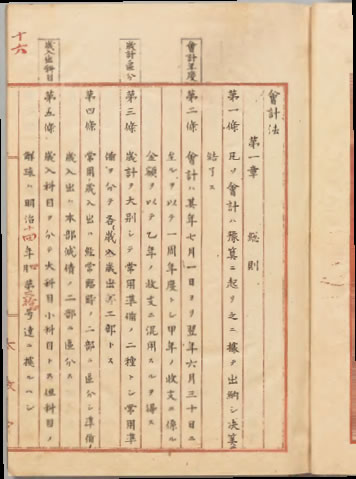 會計法
第一章 總則
第一條 凡ソ會計ハ豫算ニ起リ之ニ據テ出納シ決算ニ
結了ス
會計年度
第二條 會計ハ其年七月一日ヨリ翌年六月三十日ニ
至ルヲ以テ一周年度トシ甲年ノ收支ニ係ル
金額ヲ以テ乙年ノ收支ニ混用スルヲ得ス
歳計區分
第三條 歳計ヲ大別シテ常用準備ノ二種トシ常用準
備ヲ分テ各歳入歳出ノ二部トス
第四條 常用歳入出ハ經常臨時ノ二部ニ區分シ準備ノ
歳入出ハ本部減債ノ二部ニ區分ス
歳入出科目
第五條 歳入科目ヲ分テ大科目小科目トス但科目ノ
解疏ハ明治十四年 第 號達ニ據ルヘシ
十六